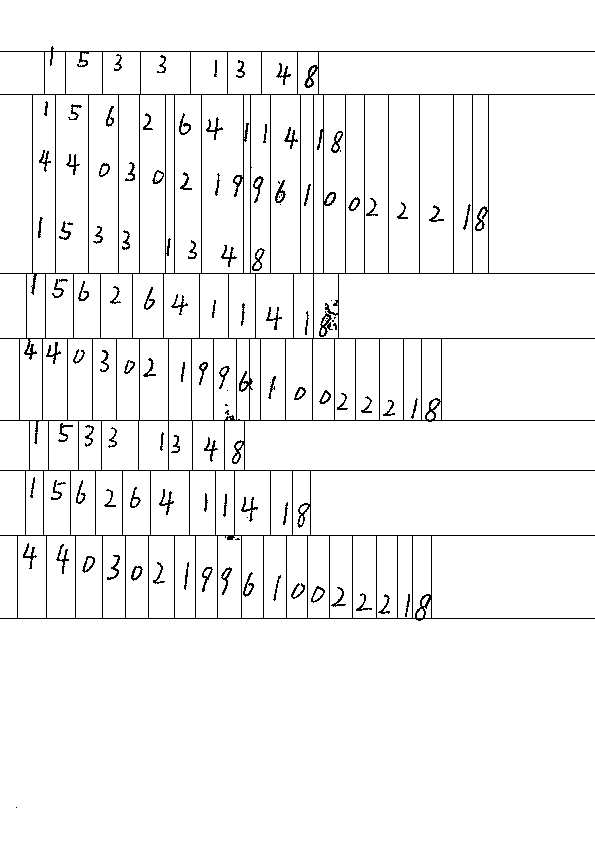 15331348
15626411418
440302199610022218
15331348
15626411418
440302199610022218
15331348
15626411418
440302199610022218